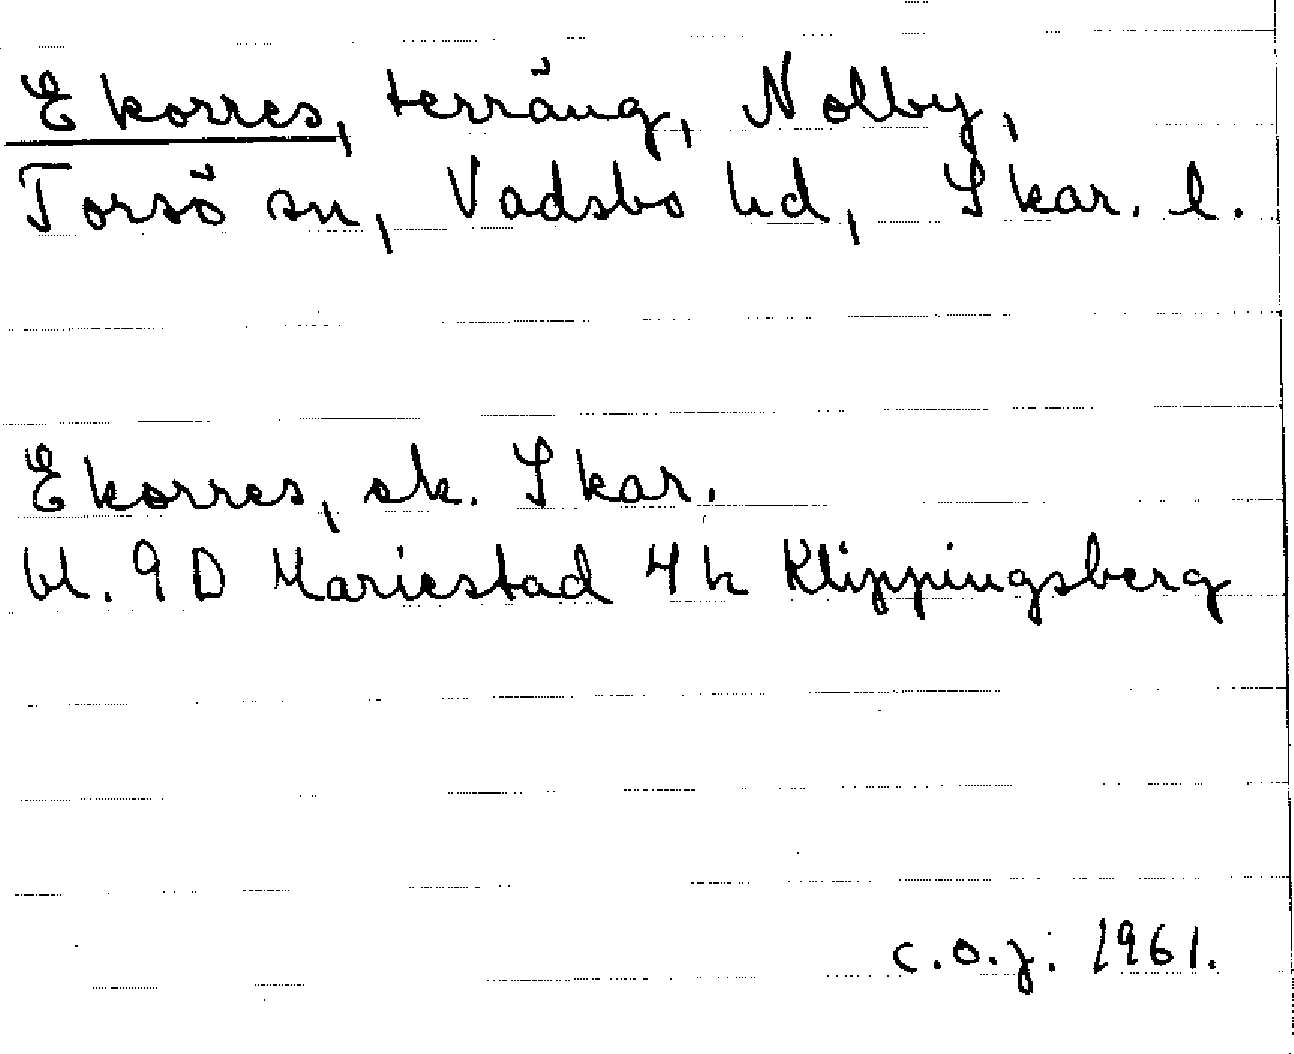 Ekorres, terräng, Nolby,
Torsö sn, Vadsbo hd, Skar. l.
Ekorres, ek. Skar.
bl. 9D Mariestad 4h Klippingsberg
c.o.j. 1961.